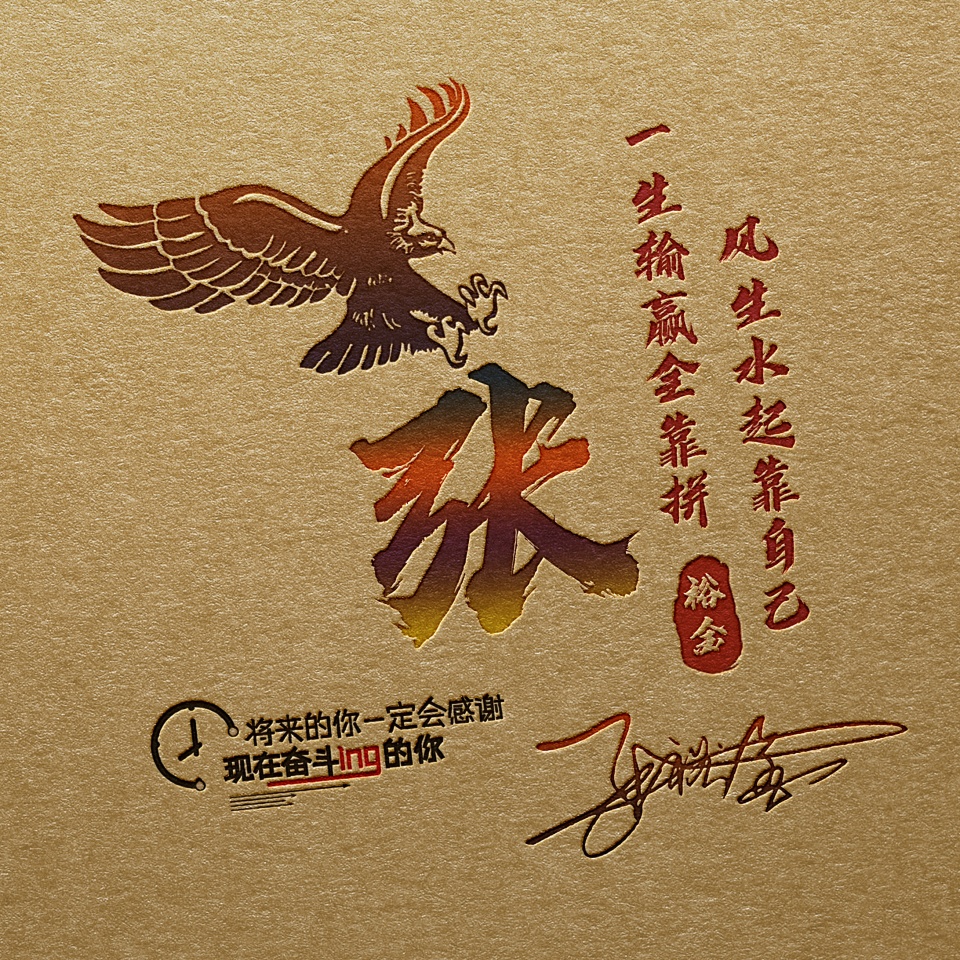 风生水起靠自己
一生输赢全靠拼
裕金
张
将来的你一定会感谢
现在奋斗ing的你
张裕金